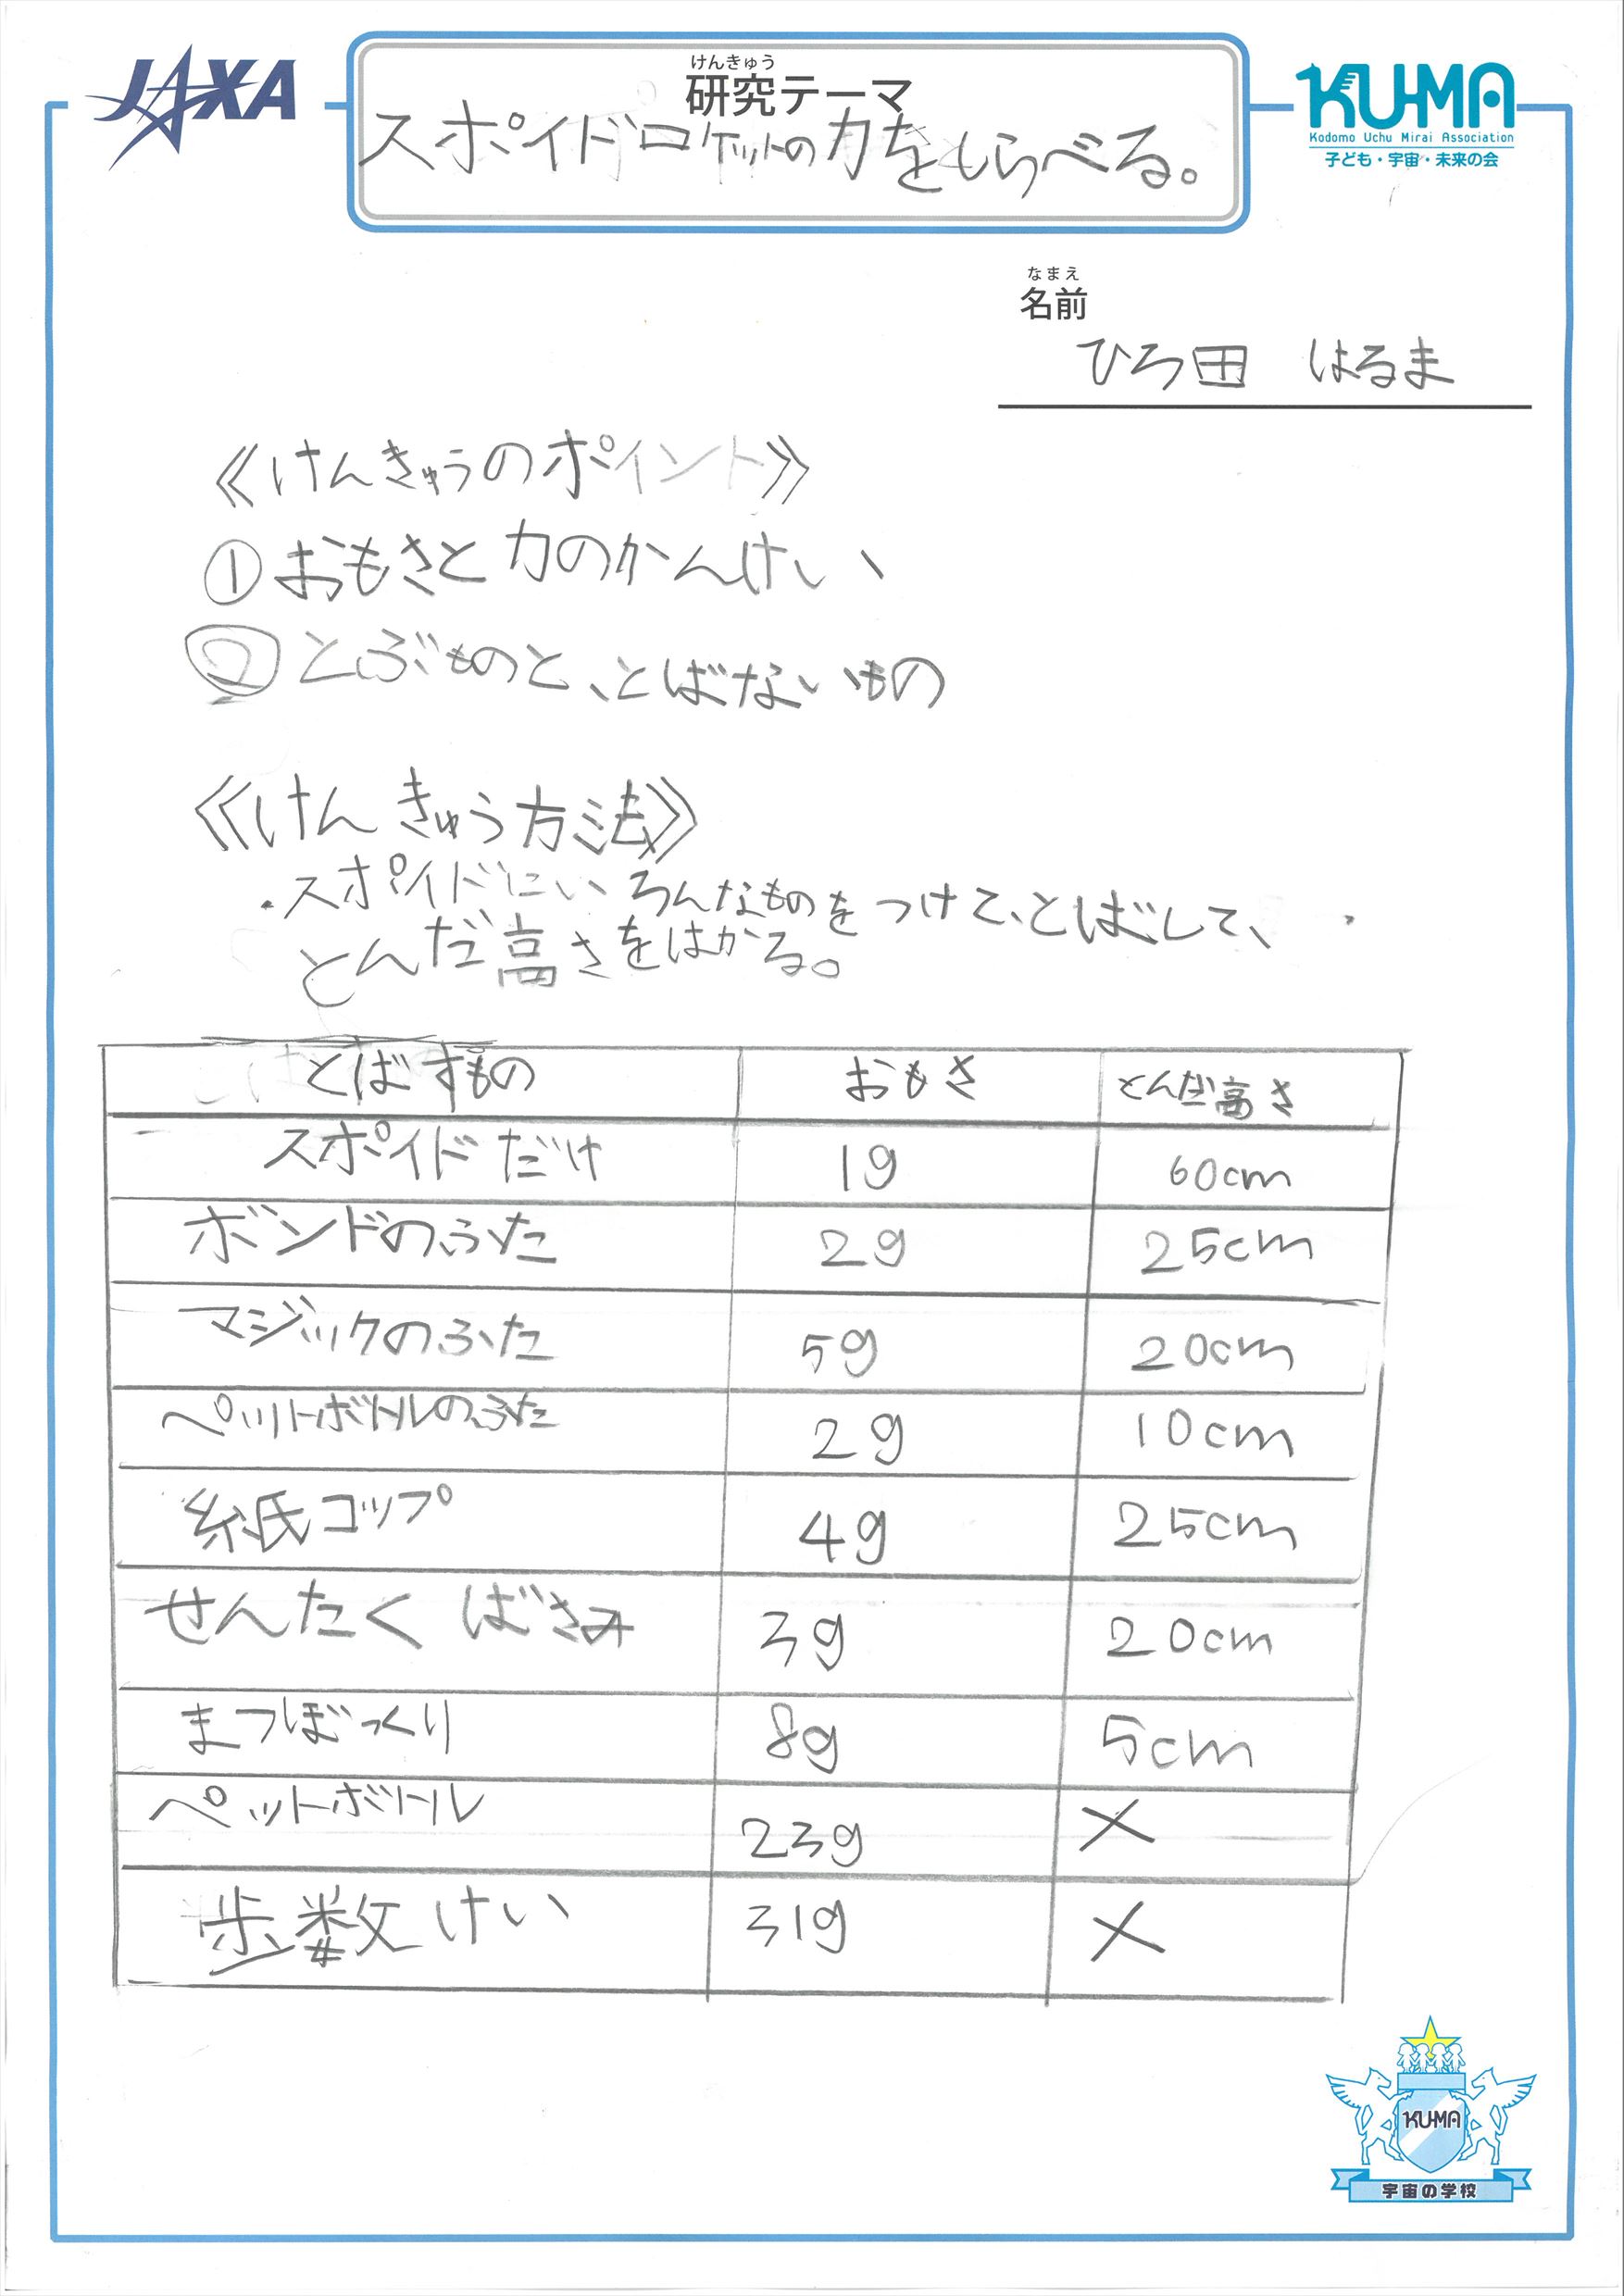 JAXA
けんきゅう
研究テーマ
スポイドロケットの力をしらべる。
KU-MA
Kodomo Uchu Mirai Association
子ども・宇宙・未来の会
なまえ
名前
ひろ田 はるま
《けんきゅうのポイント》
①おもさと力のかんけい、
②とぶものと、とばないもの
《けんきゅう方法》
・スポイドにいろんなものをつけて、とばして、
とんだ高さをはかる。
とばすもの おもさ とんだ高さ
スポイドだけ 1g 60cm
ボンドのふた 2g 25cm
マジックのふた 5g 20cm
ペットボトルのふた 2g 10cm
紙コップ 4g 25cm
せんたくばさみ 3g 20cm
まつぼっくり 8g 5cm
ペットボトル 23g ×
歩数けい 31g ×
KU-MA
宇宙の学校